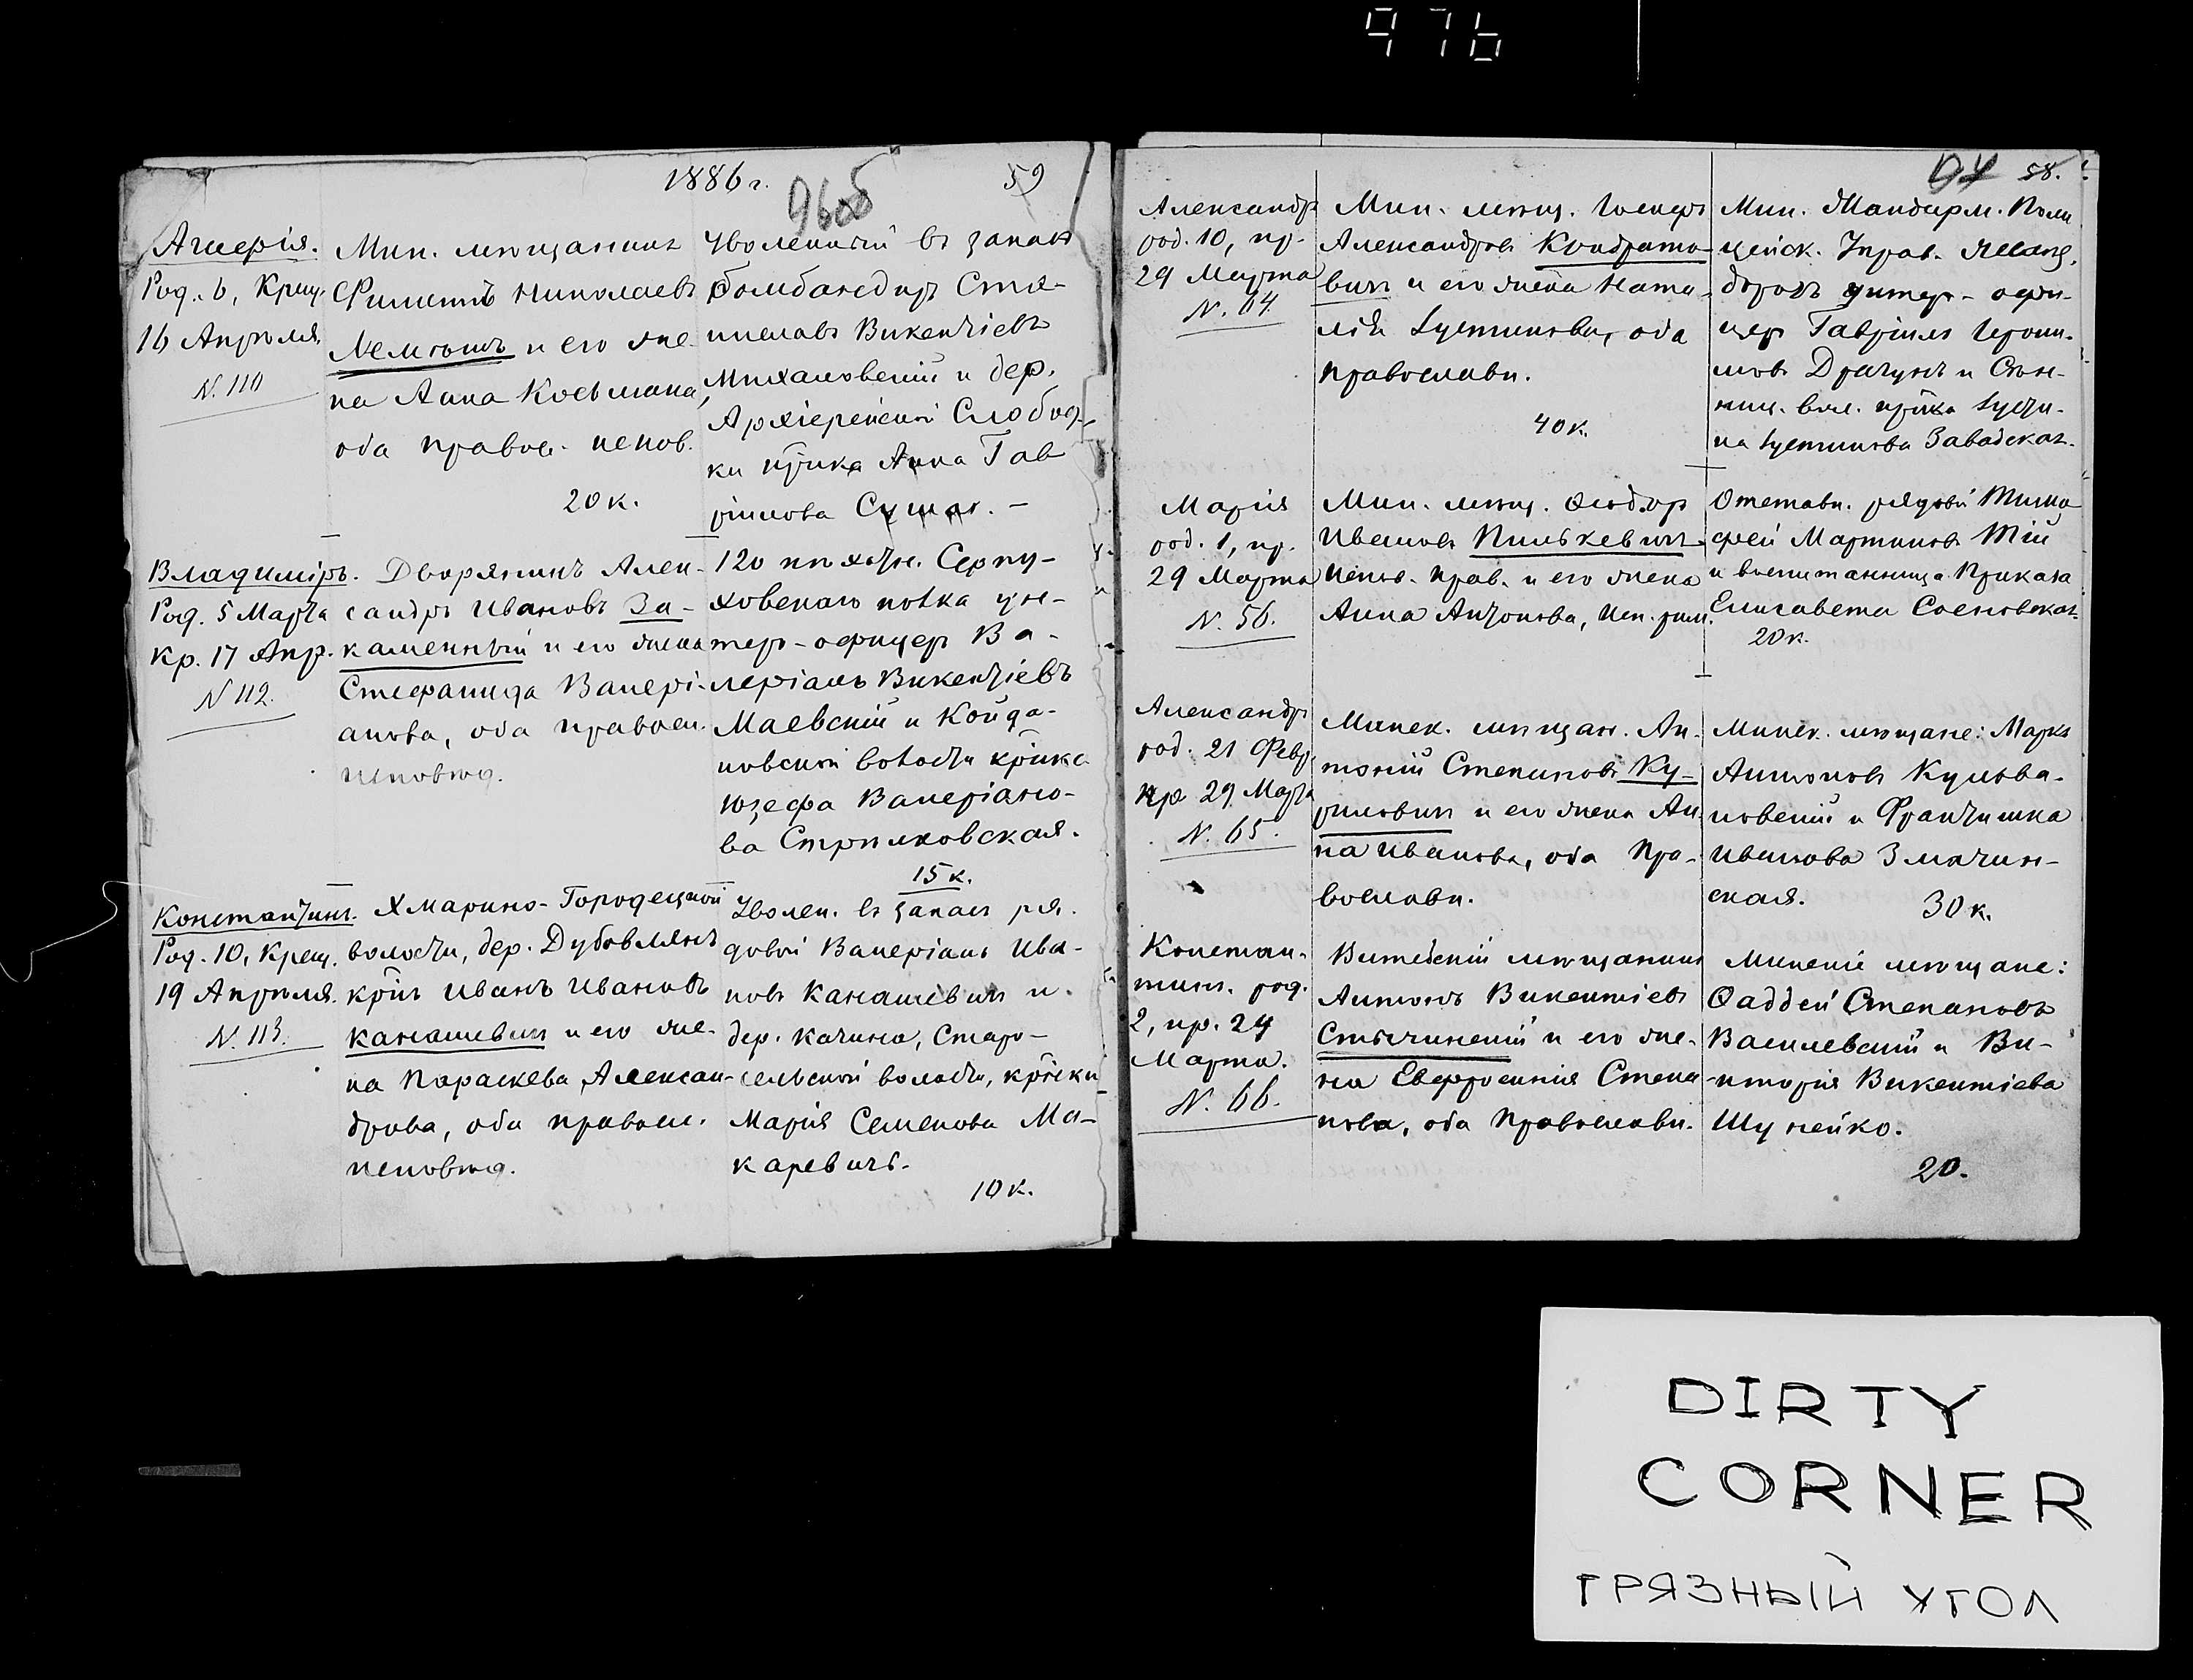 976
1886 г.
96об
59
Агнерія.
Род. 6, Крещ.
16 Апрѣля.
N. 110
Мин. мѣщанинъ
Филиппъ Николаевъ
Немкышъ и его же-
на Анна Косьмина,
оба правос. испов.
20 к.
Уволенный въ запасъ
бомбандиръ Ста-
ниславъ Викентіевъ
Михаловскій и дер.
Архіерейской Слобод-
ки кр-нка Анна Гав
ріилова Сушая. -
Владиміръ.
Род. 5 Марта
Кр. 17 Апр.
N 112.
Дворянинъ Алек-
сандръ Ивановъ За-
каменный и его жена
Стефанида Валері-
анова, оба правосл.
исповѣд.
120 пѣхотн. Серпу-
ховскаго полка ун-
теръ-офицеръ Ва-
леріанъ Викентіевъ
Маевскій и Койда-
новской волости кр-нка
Юзефа Валеріано-
ва Стрѣлковская.
15 к.
Константинъ.
Род. 10, Крещ.
19 Апрѣля.
N. 113.
Хмарино-Городецкой
волости, дер. Дубовлянъ
кр-нъ Иванъ Ивановъ
Канашевичъ и его же-
на Параскева Алексан-
дрова, оба правосл.
исповѣд.
Уволен. въ запасъ ря-
довой Валеріанъ Ива-
новъ Канашевичъ и
дер. Качина, Старо-
сельской волости, кр-нка
Марія Семенова Ма-
каревичъ.
10 к.
58.
Александръ
род. 10, кр.
29 Марта
N. 64.
Мин. мѣщ. Іосифъ
Александровъ Кондрато-
вичъ и его жена Ната-
лія Іустинова, оба
православн.
40 к.
Мин. Жандарм. Поли
цейск. Управ. Желѣз.
дорогъ унтеръ-офи-
церъ Гавріилъ Іерони-
мовъ Драгунъ и Сѣн-
ниц. вол. кр-нка Іусти-
на Іустинова Завадская.
Марія
род. 1, кр.
29 Марта
N. 56.
Мин. мѣщ. Ѳеодоръ
Ивановъ Пилькевичъ
испов. прав. и его жена
Анна Антонова, исп. рим.
Отставн. рядовой Тимо
фей Мартиновъ Тій
и воспитанница Приказа
Елисавета Сосновская.
20 к.
Александръ
род. 21 Февр.
кр. 29 Марта
N. 65.
Минск. мѣщан. Ан-
тоній Степановъ Ку-
риловичъ и его жена Ан-
на Иванова, оба Пра-
вославн.
Минск. мѣщане: Маркъ
Антоновъ Кульва-
новскій и Франтишка
Иванова Змачин-
ская.
30 к.
Констан-
тинъ. род.
2, кр. 24
Марта.
N. 66.
Витебскій мѣщанинъ
Антонъ Викентіевъ
Стычинскій и его же-
на Евфросинія Степа
нова, оба Православн.
Минскіе мѣщане:
Ѳаддей Степановъ
Василевскій и Ви-
кторія Викентіева
Шунейко.
20.
DIRTY
CORNER
ГРЯЗНЫЙ УГОЛ